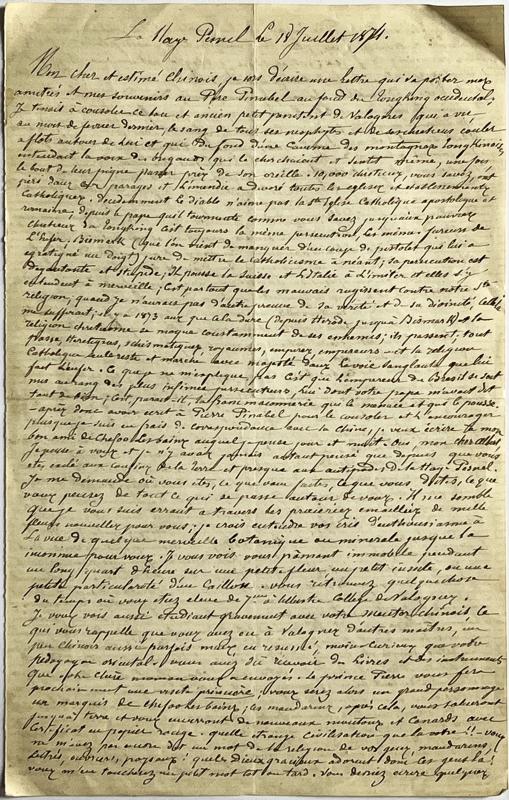 La Haye Pesnel le 18 Juillet 1874.
Mon cher et estimé Chinois, je sors d'écrire une lettre qui va porter mes
amitiés et mes souvenirs au Père Pinabel au fond du Tongking occidental.
Je tenais à consoler ce bon et ancien petit pénitent de Valognes que a vu
au mois de février dernier, le sang de tous ses néophytes et de ses catéchistes couler
à flots autour de lui et qui du fond d'une caverne des montagnes tongkinoises
entendait la voix des brigands qui le cherchaient et sentit même, une fois
le bout de leur pique passer près de son oreille. 10,000 chrétiens, vous savez, ont
péri dans ces parages et l'incendie a dévoré toutes les églises et établissements
catholiques. Décidemment le diable n'aime pas la Ste Eglise Catholique apostolique et
romaine, depuis le pape qu'il tourmente comme vous savez jusqu'aux pauvres
chrétiens du Tongking c'est toujours la même persécution, les mêmes fureurs de
l'enfer. Bismark (que l'on vient de manquer d'un coup de pistolet qui lui a
égratigné un doigt) jure de mettre le catholicisme à néant; sa persécution est
dégoutante et stupide; il pousse la Suisse et l'Italie à l'imiter et elles s'y
entendent à merveille; c'est partout que les mauvais rugissent contre notre Ste
religion; quand je n'aurais pas d'autre preuve de sa vérité et de sa divinité, celle là
me suffirait; il y a 1873 ans que cela dure (depuis Hérode jusqu'à Bismark) et la
religion chrétienne se moque constamment de ses ennemis; ils passent, tout
passe, hérétiques, schismatiques royaumes, empires, empereurs et la religion
Catholique seule reste et marche avec majesté dans la voie sanglante que lui
fait l'enfer. Ce que je ne m'explique pas c'est que l'empereur du Brésil se soit
mis au rang des plus infimes persécuteurs, lui dont votre papa m'avait dit
tant de bien; c'est parait-il, la franc maçonnerie qui le menace et qui le pousse.
-après donc avoir écrit à Pierre Pinabel pour le consoler et l'encourager
puisque je suis en frais de correspondance avec la Chine, je veux écrire à mon
bon ami de Chefoo les bains auquel je pense jour et nuit. Oui, mon cher Albert
je pense à vous et je n'y avais jamais autant pensé que depuis que vous
êtes exilé aux confins de la terre et presque aux antipodes de la Haye Pesnel.
Je me demande où vous êtes, ce que vous faites, ce que vous dites, ce que
vous pensez de tout ce qui se passe autour de vous. Il me semble
que je vous suis errant à travers les prairies émaillées de mille
fleurs nouvelles pour vous; je crois entendre vos cris d'enthousiasme à
la vue de quelque merveille botanique ou minérale jusque là
inconnue pour vous. Je vous vois vous pâmant immobile pendant
un long quart d'heure sur une petite fleur, un petit insecte, ou une
petite particularité d'un caillou. Vous retrouvez quelque chose
du temps où vous étiez élève de 7ème à l'illustre College de Valognes.
Je vous vois aussi étudiant gravement avec votre mentor chinois ce
qui vous rappelle que vous avez eu à Valognes d'autres maîtres, un
peu chinois aussi parfois mais en résumé, moins curieux que votre
pédagogue oriental. Vous avez dû recevoir des livres et des instruments
que votre chère maman vous a envoyés. le prince Pierre vous fera
prochainement une visite princière; vous serez alors un grand personnage
un marquis de Chefoo les bains; les mandarins, après cela, vous salueront
jusqu'à terre et vous enverront de nouveaux moutons et canards avec
certificat en papier rouge. quelle étrange civilisation que la votre!! - vous
ne m'avez pas encore dit un mot de la religion de vos gens, mandarins,
lettrés, ouvriers, paysans: quels dieux gracieux adorent donc ces gens là!
vous m'en toucherez un petit mot tôt ou tard. Vous devriez écrire quelques